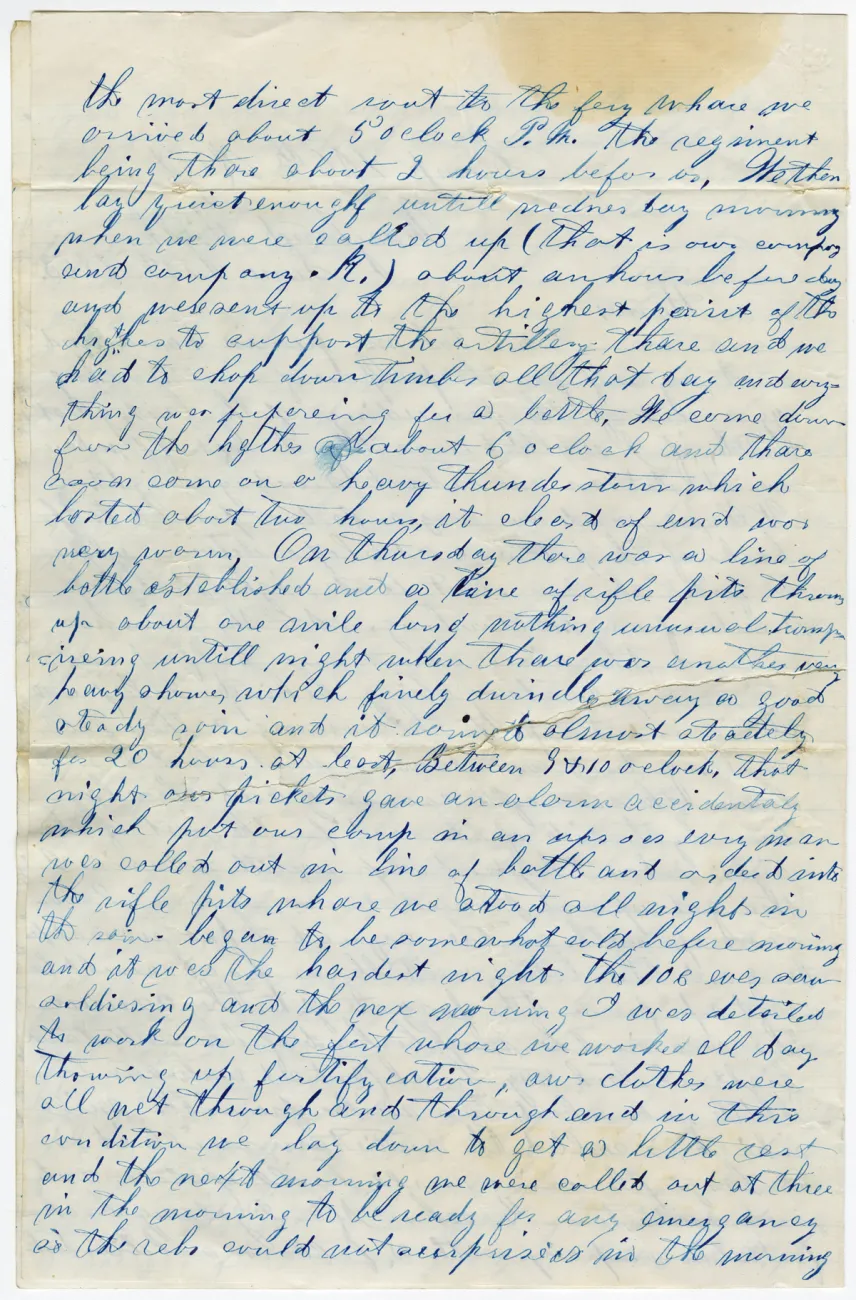 the most direct rout to the fery whare we
arrived about 5 oclock P.M. the regiment
being thare about 2 hours befor us, We then
lay quiet enough untill wednes day morning
when we were called up (that is our company
and company K.) about an hour before day
and were sent up to the highest point of the
to support the artillery thare and we
had to chop down timber all that day and evry=
thing was prepareing for a battle. We come down
from the hethes about 6 oclock and thare
soon come on a heavy thunder storm which
lasted about two hours, it cleard of and was
very warm, On thursday there was a line of
battle established and a line of rifle pits thrown
up about one mile long nothing unusual transp
=ireing untill night when thare was another very
heavy shower which finely dwindle away a good
steady rain and it raind almost steadely
for 20 hours at least, Between 9 & 10 oclock, that
night our pickets gave an alarm accidentaly
which put our camp in an up roar evry man
was called out in line of battle and orderd into
the rifle pits whare we stood all night in
the rain. began to be somewhat cold before morning
and it was the hardest night the 106 ever saw
soldiering and the nex morning I was detailed
to work on the fort whare we worked all day
throwing up fortifycation, our clothes were
all wet through and through and in this
condition we lay down to get a little rest
and the next morning we were called out at three
in the morning to be ready for any emergancy
so the rebs could not surprise us in the morning